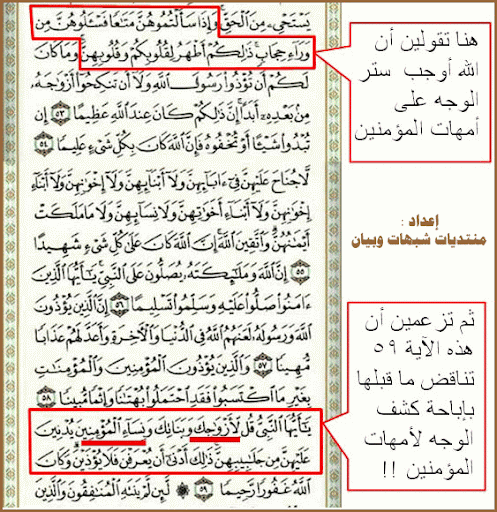 يَسْتَحْيِۦ مِنَ ٱلْحَقِّ ۚ وَإِذَا سَأَلْتُمُوهُنَّ مَتَٰعًا فَسْـَٔلُوهُنَّ مِن
وَرَآءِ حِجَابٍ ۚ ذَٰلِكُمْ أَطْهَرُ لِقُلُوبِكُمْ وَقُلُوبِهِنَّ ۚ وَمَا كَانَ
لَكُمْ أَن تُؤْذُوا۟ رَسُولَ ٱللَّهِ وَلَآ أَن تَنكِحُوٓا۟ أَزْوَٰجَهُۥ
مِنۢ بَعْدِهِۦٓ أَبَدًا ۚ إِنَّ ذَٰلِكُمْ كَانَ عِندَ ٱللَّهِ عَظِيمًا ٥٣ إِن
تُبْدُوا۟ شَيْـًٔا أَوْ تُخْفُوهُ فَإِنَّ ٱللَّهَ كَانَ بِكُلِّ شَىْءٍ عَلِيمًا ٥٤
لَّا جُنَاحَ عَلَيْهِنَّ فِىٓ ءَابَآئِهِنَّ وَلَآ أَبْنَآئِهِنَّ وَلَآ إِخْوَٰنِهِنَّ وَلَآ أَبْنَآءِ
إِخْوَٰنِهِنَّ وَلَآ أَبْنَآءِ أَخَوَٰتِهِنَّ وَلَا نِسَآئِهِنَّ وَلَا مَا مَلَكَتْ
أَيْمَٰنُهُنَّ ۗ وَٱتَّقِينَ ٱللَّهَ ۚ إِنَّ ٱللَّهَ كَانَ عَلَىٰ كُلِّ شَىْءٍ شَهِيدًا
٥٥ إِنَّ ٱللَّهَ وَمَلَٰٓئِكَتَهُۥ يُصَلُّونَ عَلَى ٱلنَّبِىِّ ۚ يَٰٓأَيُّهَا ٱلَّذِينَ
ءَامَنُوا۟ صَلُّوا۟ عَلَيْهِ وَسَلِّمُوا۟ تَسْلِيمًا ٥٦ إِنَّ ٱلَّذِينَ يُؤْذُونَ
ٱللَّهَ وَرَسُولَهُۥ لَعَنَهُمُ ٱللَّهُ فِى ٱلدُّنْيَا وَٱلْءَاخِرَةِ وَأَعَدَّ لَهُمْ عَذَابًا
مُّهِينًا ٥٧ وَٱلَّذِينَ يُؤْذُونَ ٱلْمُؤْمِنِينَ وَٱلْمُؤْمِنَٰتِ
بِغَيْرِ مَا ٱكْتَسَبُوا۟ فَقَدِ ٱحْتَمَلُوا۟ بُهْتَٰنًا وَإِثْمًا مُّبِينًا ٥٨
يَٰٓأَيُّهَا ٱلنَّبِىُّ قُل لِّأَزْوَٰجِكَ وَبَنَاتِكَ وَنِسَآءِ ٱلْمُؤْمِنِينَ يُدْنِينَ
عَلَيْهِنَّ مِن جَلَٰبِيبِهِنَّ ۚ ذَٰلِكَ أَدْنَىٰٓ أَن يُعْرَفْنَ فَلَا يُؤْذَيْنَ ۗ وَكَانَ
ٱللَّهُ غَفُورًا رَّحِيمًا ٥٩ ۞ لَّئِن لَّمْ يَنتَهِ ٱلْمُنَٰفِقُونَ وَٱلَّذِينَ
هنا تقولين أن
الله أوجب ستر
الوجه على
أمهات المؤمنين
إعداد :
منتديات شبهات وبيان
ثم تزعمين أن
هذه الآية ٥٩
تناقض ما قبلها
بإباحة كشف
الوجه لأمهات
المؤمنين !!